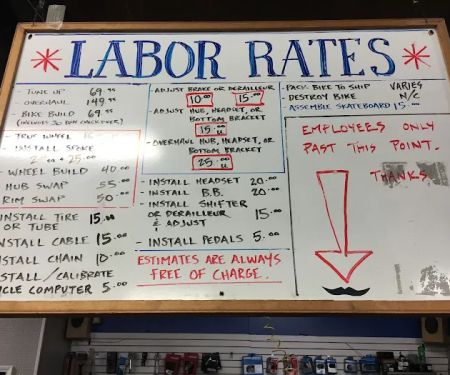 * LABOR RATES *
- TUNE UP 69.95
- OVERHAUL 149.95
- BIKE BUILD 69.95
(INCLUDES 30 DAY CHECKOVER)
- TRUE WHEEL
- INSTALL SPOKE
- WHEEL BUILD 40.00
HUB SWAP 55.00
RIM SWAP 50.00
INSTALL TIRE 15.00
OR TUBE
NSTALL CABLE 15.00
NSTALL CHAIN 10.00
STALL/CALIBRATE
CLE COMPUTER 5.00
ADJUST BRAKE OR DERAILLEUR
10.00 15.00
ADJUST HUB, HEADSET, OR
BOTTOM BRACKET
15.00
- OVERHAUL HUB, HEADSET, OR
BOTTOM BRACKET
25.00
- INSTALL HEADSET 20.00
- INSTALL B.B. 20.00
- INSTALL SHIFTER
OR DERAILLEUR 15.00
& ADJUST
- INSTALL PEDALS 5.00
ESTIMATES ARE ALWAYS
FREE OF CHARGE.
- PACK BIKE TO SHIP VARIES
- DESTROY BIKE N/C
- ASSEMBLE SKATEBOARD 15.00
EMPLOYEES ONLY
PAST THIS POINT.
THANKS